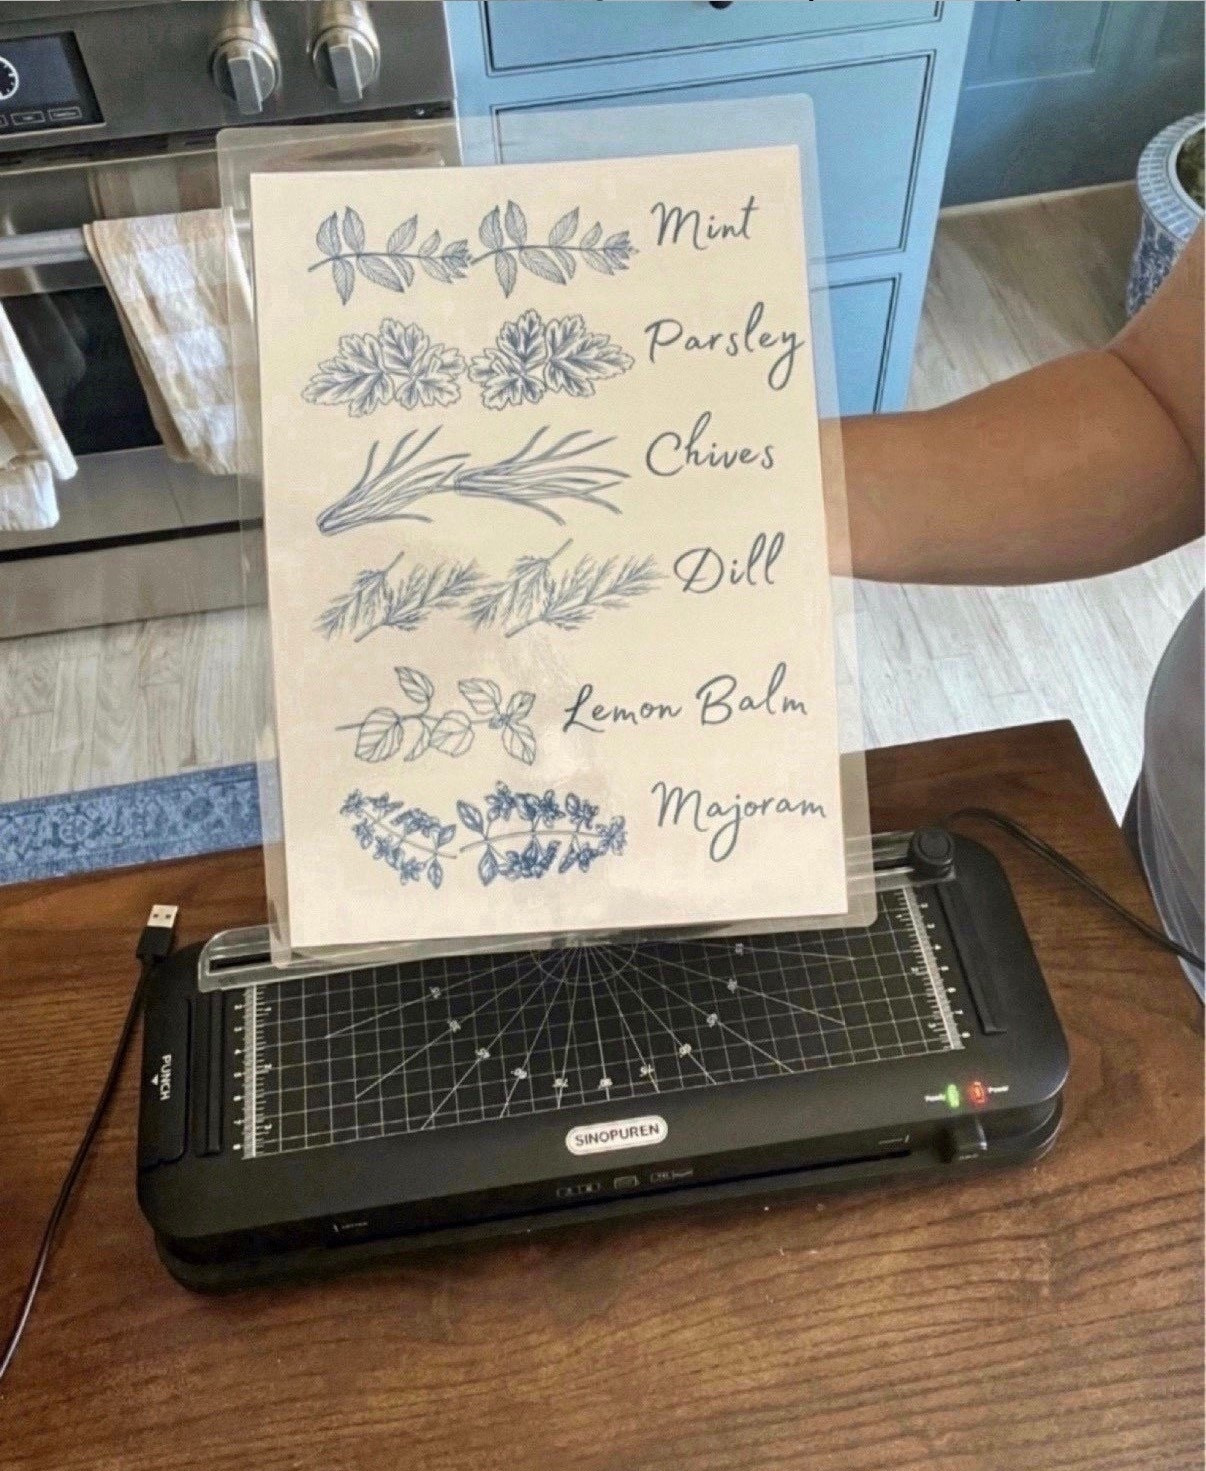 Mint
Parsley
Chives
Dill
Lemon Balm
Majoram
PUNCH
Ready
Power
SINOPUREN